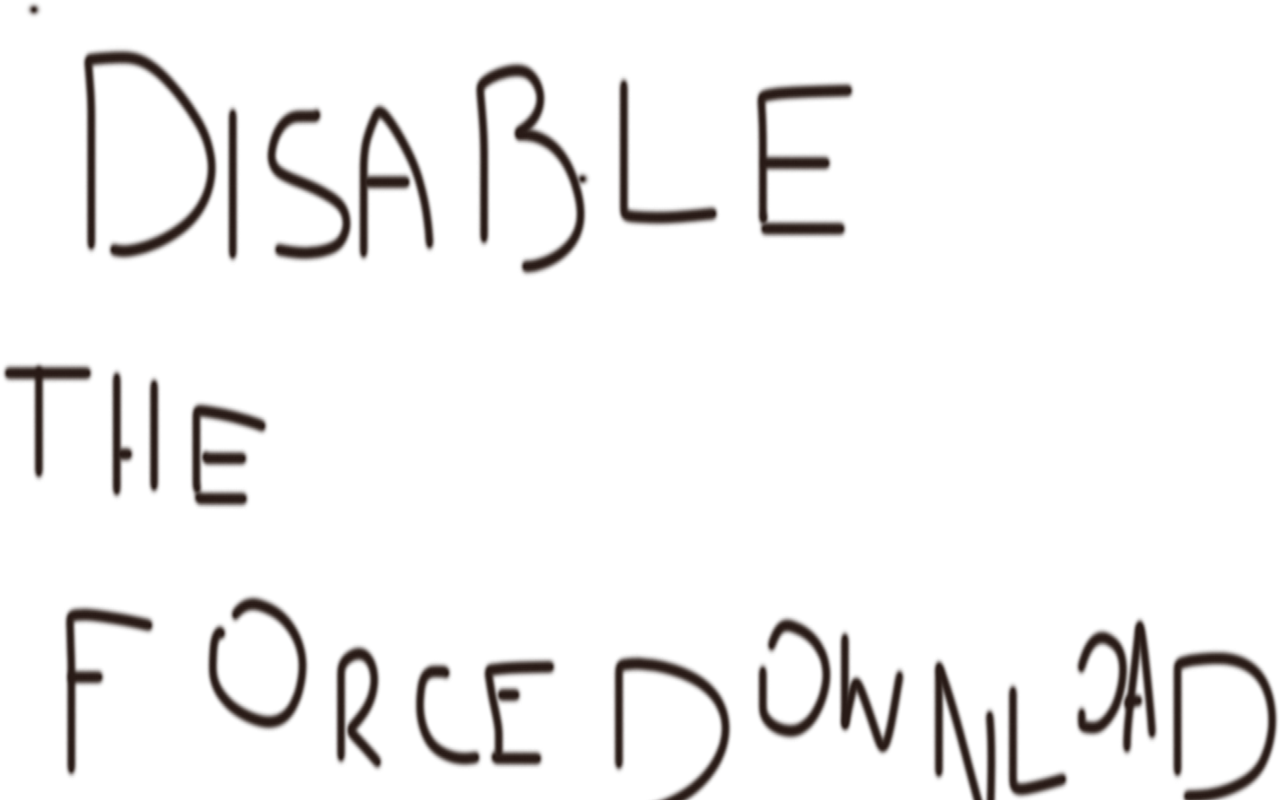 DISABLE
THE
FORCE DOWNLOAD